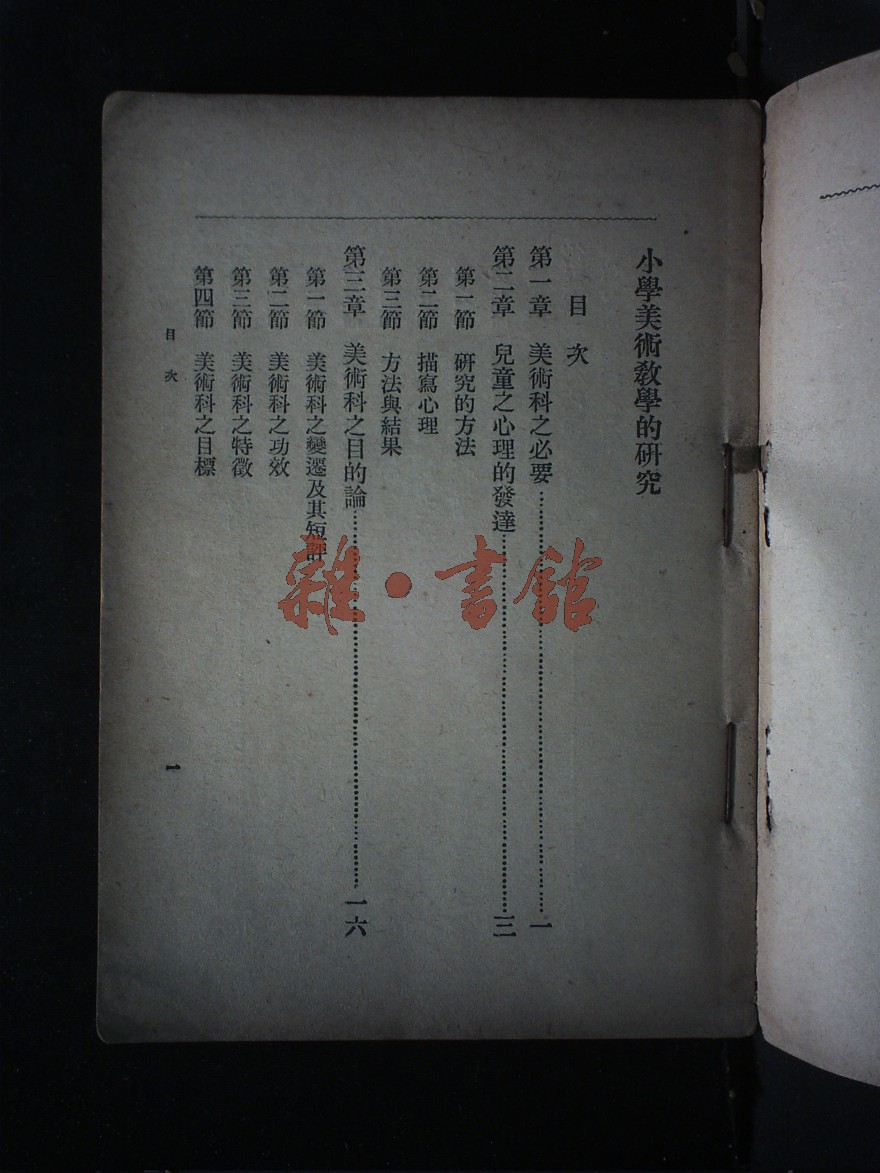 小學美術教學的研究
目次
第一章　美術科之必要……一
第二章　兒童之心理的發達……三
第一節　研究的方法
第二節　描寫心理
第三節　方法與結果
第三章　美術科之目的論……一六
第一節　美術科之變遷及其短評
第二節　美術科之功效
第三節　美術科之特徵
第四節　美術科之目標
目次
一
雜・書館